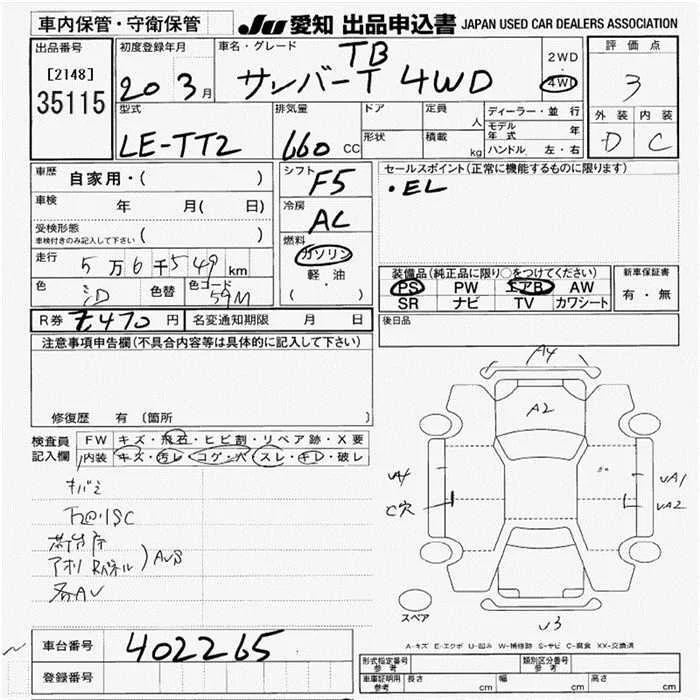 車内保管・守衛保管
JU 愛知 出品申込書 JAPAN USED CAR DEALERS ASSOCIATION
出品番号
[2148]
35115
初度登録年月
20 3 月
車名・グレード
TB
サンバーT 4WD
2WD
・
4WD
評価点
3
外装 内装
D C
型式
LE-TT2
排気量
660 CC
ドア
形状
定員
人
積載
kg
ディーラー・並行
モデル年式 年
ハンドル 左・右
車歴 自家用・( )
車検 年 月( 日)
受検形態
車検付きのみ記入して下さい ( )
走行 5万6千549 km
色 色替 色コード 59M
シフト
F5
冷房
AC
燃料
ガソリン
軽油
( )
セールスポイント(正常に機能するものに限ります)
・EL
装備品(純正品に限り○をつけてください)
PS PW エアB AW
SR ナビ TV カワシート
新車保証書
有・無
R券 7,470 円 名変通知期限 月 日
後日品
注意事項申告欄(不具合内容等は具体的に記入して下さい)
修復歴 有 〔箇所
検査員記入欄
FW キズ・飛石・ヒビ割・リペア跡・X要
内装 キズ・汚レ・コゲ・穴・スレ・キレ・破レ
キバミ
各AU
A4
A2
U4
C穴
UA1
UA2
U3
スペア
A-キズ E-エクボ U-凹み W-補修跡 S-サビ C-腐食 XX-交換済
車台番号 402265
登録番号
形式指定番号 参考
類別区分番号 参考
車庫証明用 参考 長さ cm 幅 cm 高さ cm